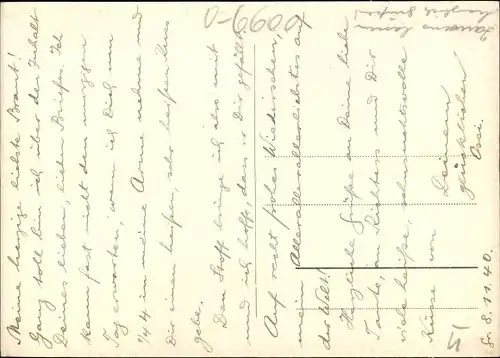 Meine herzige liebste Braut!
Ganz toll bin ich über den Inhalt
Deines lieben, lieben Briefes. Ich
kann fast nicht den morgigen
Tag erwarten, wenn ich Dich um
1/4 4 in meine Arme nehme und
Dir einen heißen, sehr heißen Kuss
gebe.
Den Stoff bringe ich also mit
und ich hoffe, dass er Dir gefällt.
Auf recht frohes Wiedersehen,
mein Allerallerallerallerliebstes auf
der Welt!
Herzliche Grüße an Deine liebe
Tante, an Richters und Dir
viele heiße, sehnsuchtsvolle
Küsse von Deinem
glücklichen
Ossi.
Fr. 8. 11. 40.
0099-0